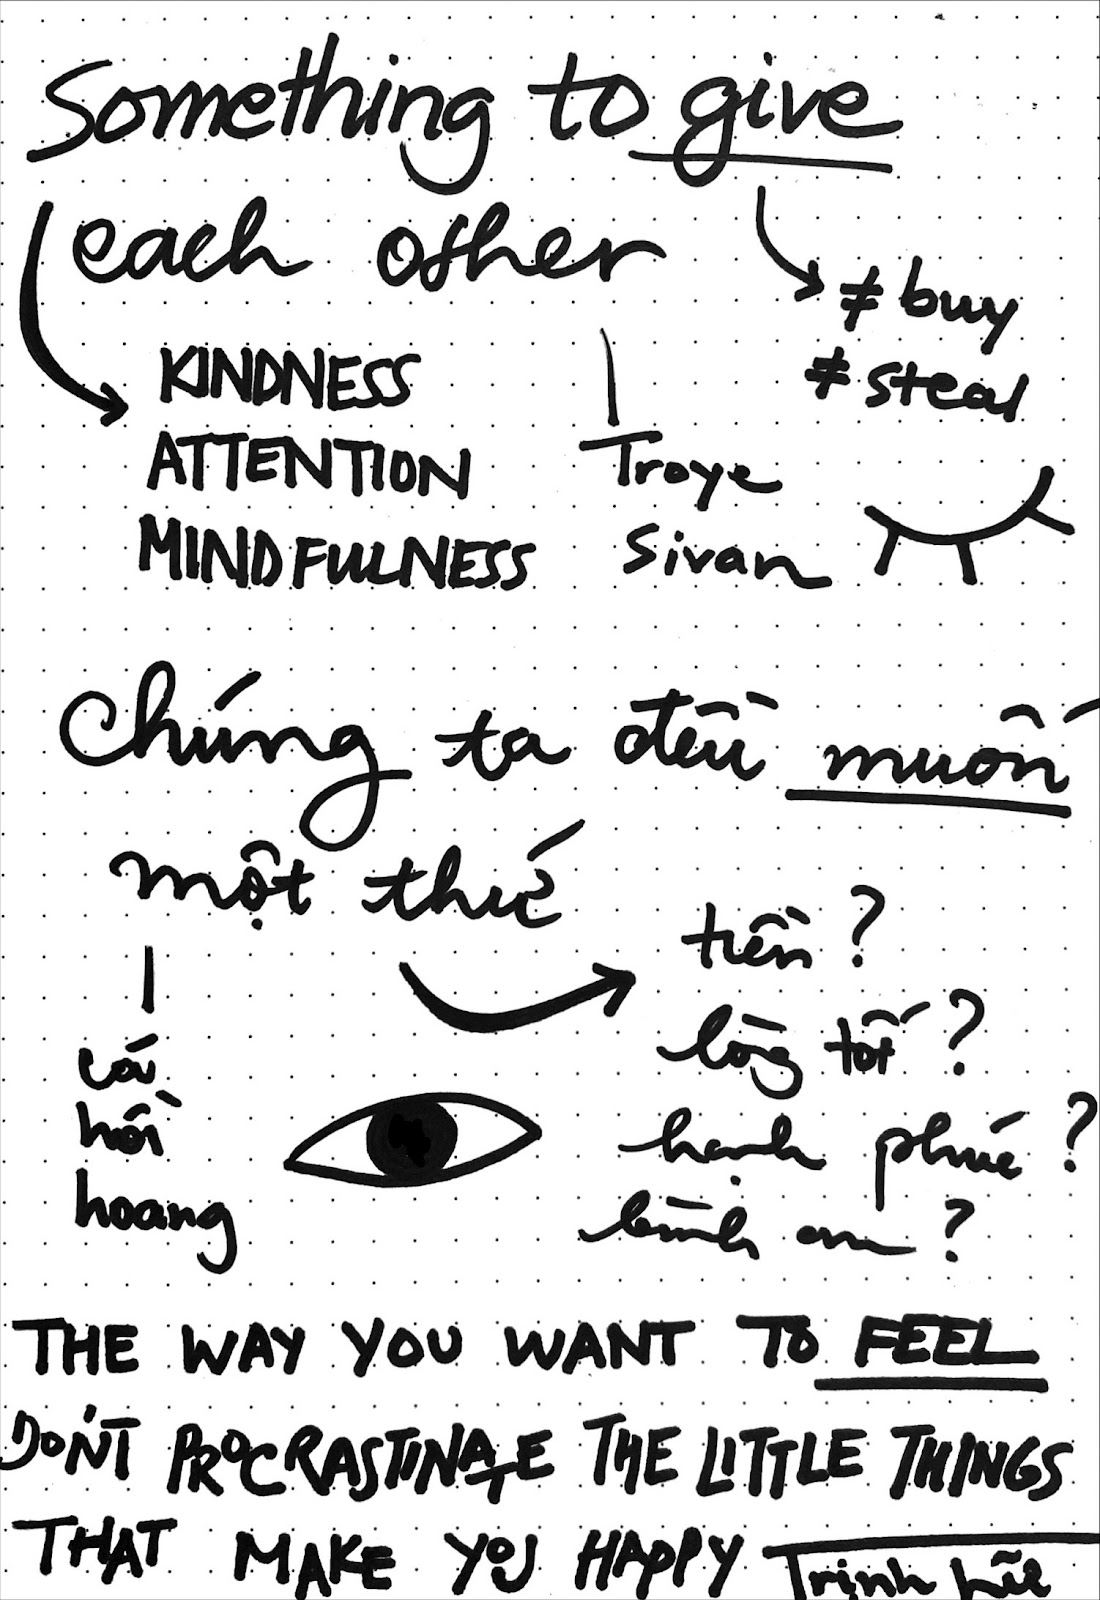 Something to give
each other
≠ buy
≠ steal
KINDNESS
ATTENTION
MINDFULNESS
Troye
Sivan
Chúng ta đều muốn
một thứ
cái
hồi
hoang
tiền ?
lòng tốt ?
hạnh phúc ?
bình an ?
THE WAY YOU WANT TO FEEL
DON'T PROCRASTINATE THE LITTLE THINGS
THAT MAKE YOU HAPPY
Trịnh Lữ